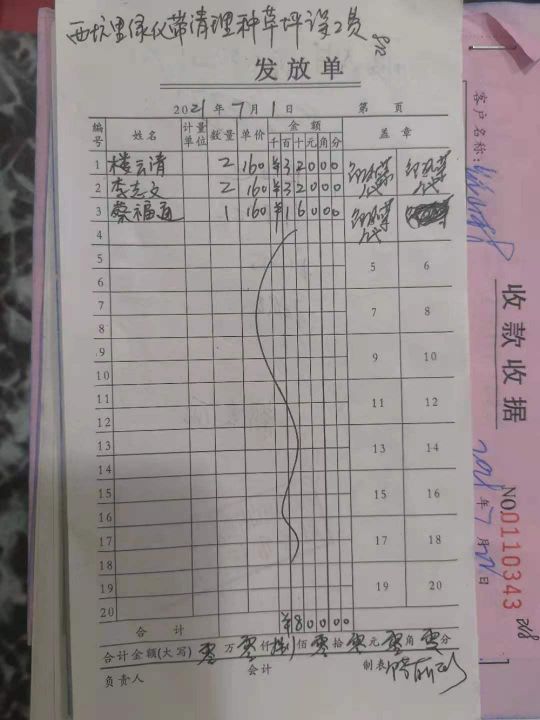 西坑里绿化带清理种草坪误工员
发放单
2021年7月1日 第 页
编号 姓名 计量单位 数量 单价 金额 盖章
千 百 十 元 角 分
1 楼云清 2 160 ¥32000
2 李志文 2 160 ¥32000
3 蔡福通 1 160 ¥16000
4
5 5 6
6
7 7 8
8
9 9 10
10
11 11 12
12
13 13 14
14
15 15 16
16
17 17 18
18
19 19 20
20
合计 ¥80000
合计金额(大写) 零万零仟捌佰零拾零元零角零分
负责人 会计 制表
客户名称:
收款收据
年7月 日
NO.0110343